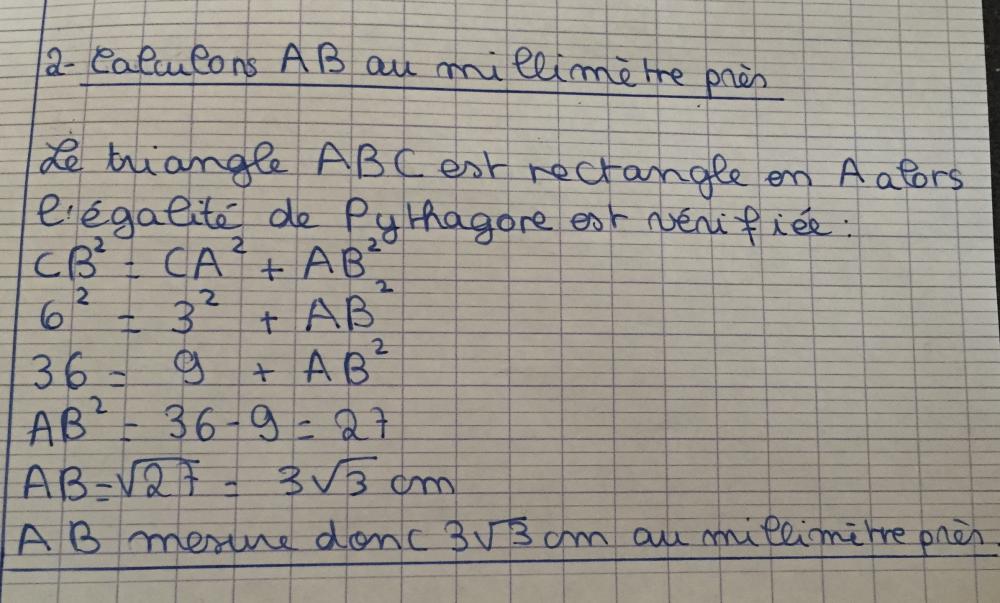 2- Calculons AB au millimètre près
Le triangle ABC est rectangle en A alors
l'égalité de Pythagore est vérifiée :
CB² = CA² + AB²
6² = 3² + AB²
36 = 9 + AB²
AB² = 36 - 9 = 27
AB = √27 = 3√3 cm
AB mesure donc 3√3 cm au millimètre près.